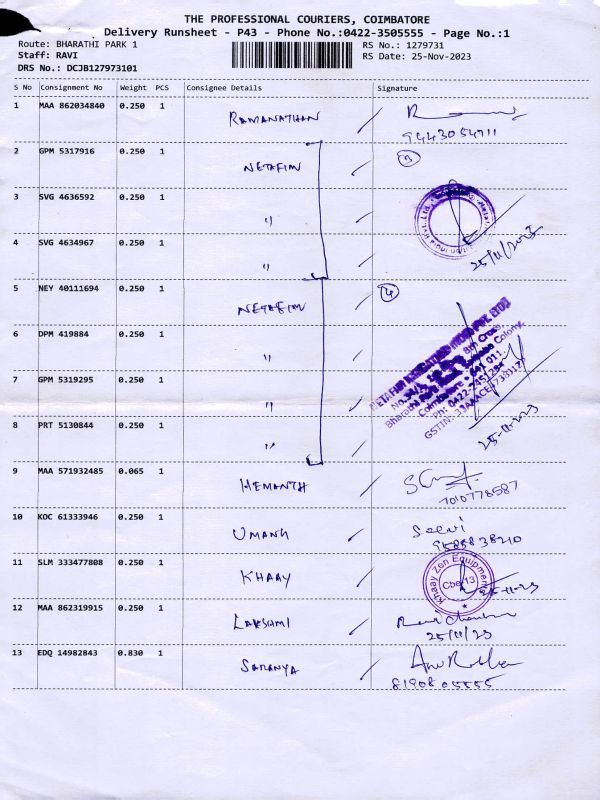 THE PROFESSIONAL COURIERS, COIMBATORE
Delivery Runsheet - P43 - Phone No.:0422-3505555 - Page No.:1
Route: BHARATHI PARK 1
RS No.: 1279731
Staff: RAVI
RS Date: 25-Nov-2023
DRS No.: DCJB127973101
S No Consignment No Weight PCS Consignee Details Signature
1 MAA 862034840 0.250 1 RAMANATHAN
9443054711
2 GPM 5317916 0.250 1 NETAFIM 3
3 SVG 4636592 0.250 1 "
4 SVG 4634967 0.250 1 "
25/11/2023
5 NEY 40111694 0.250 1 NETAFIM 4
6 DPM 419884 0.250 1 "
7 GPM 5319295 0.250 1 "
8 PRT 5130844 0.250 1 "
NETAFIM IRRIGATION INDIA PVT. LTD
8th Cross,
Bharathi Park Colony,
Coimbatore - 641 011.
Ph: 0422-
GSTIN: 33AAACE
25-11-2023
9 MAA 571932485 0.065 1 HEMANTH
7010778587
10 KOC 61333946 0.250 1 UMANG Selvi
9585838210
11 SLM 333477808 0.250 1 KHAAY
Khaay Zen Equipment
Cbe-13
25-11-23
12 MAA 862319915 0.250 1 LAKSHMI
25/11/23
13 EDQ 14982843 0.830 1 SARANYA
8190805555